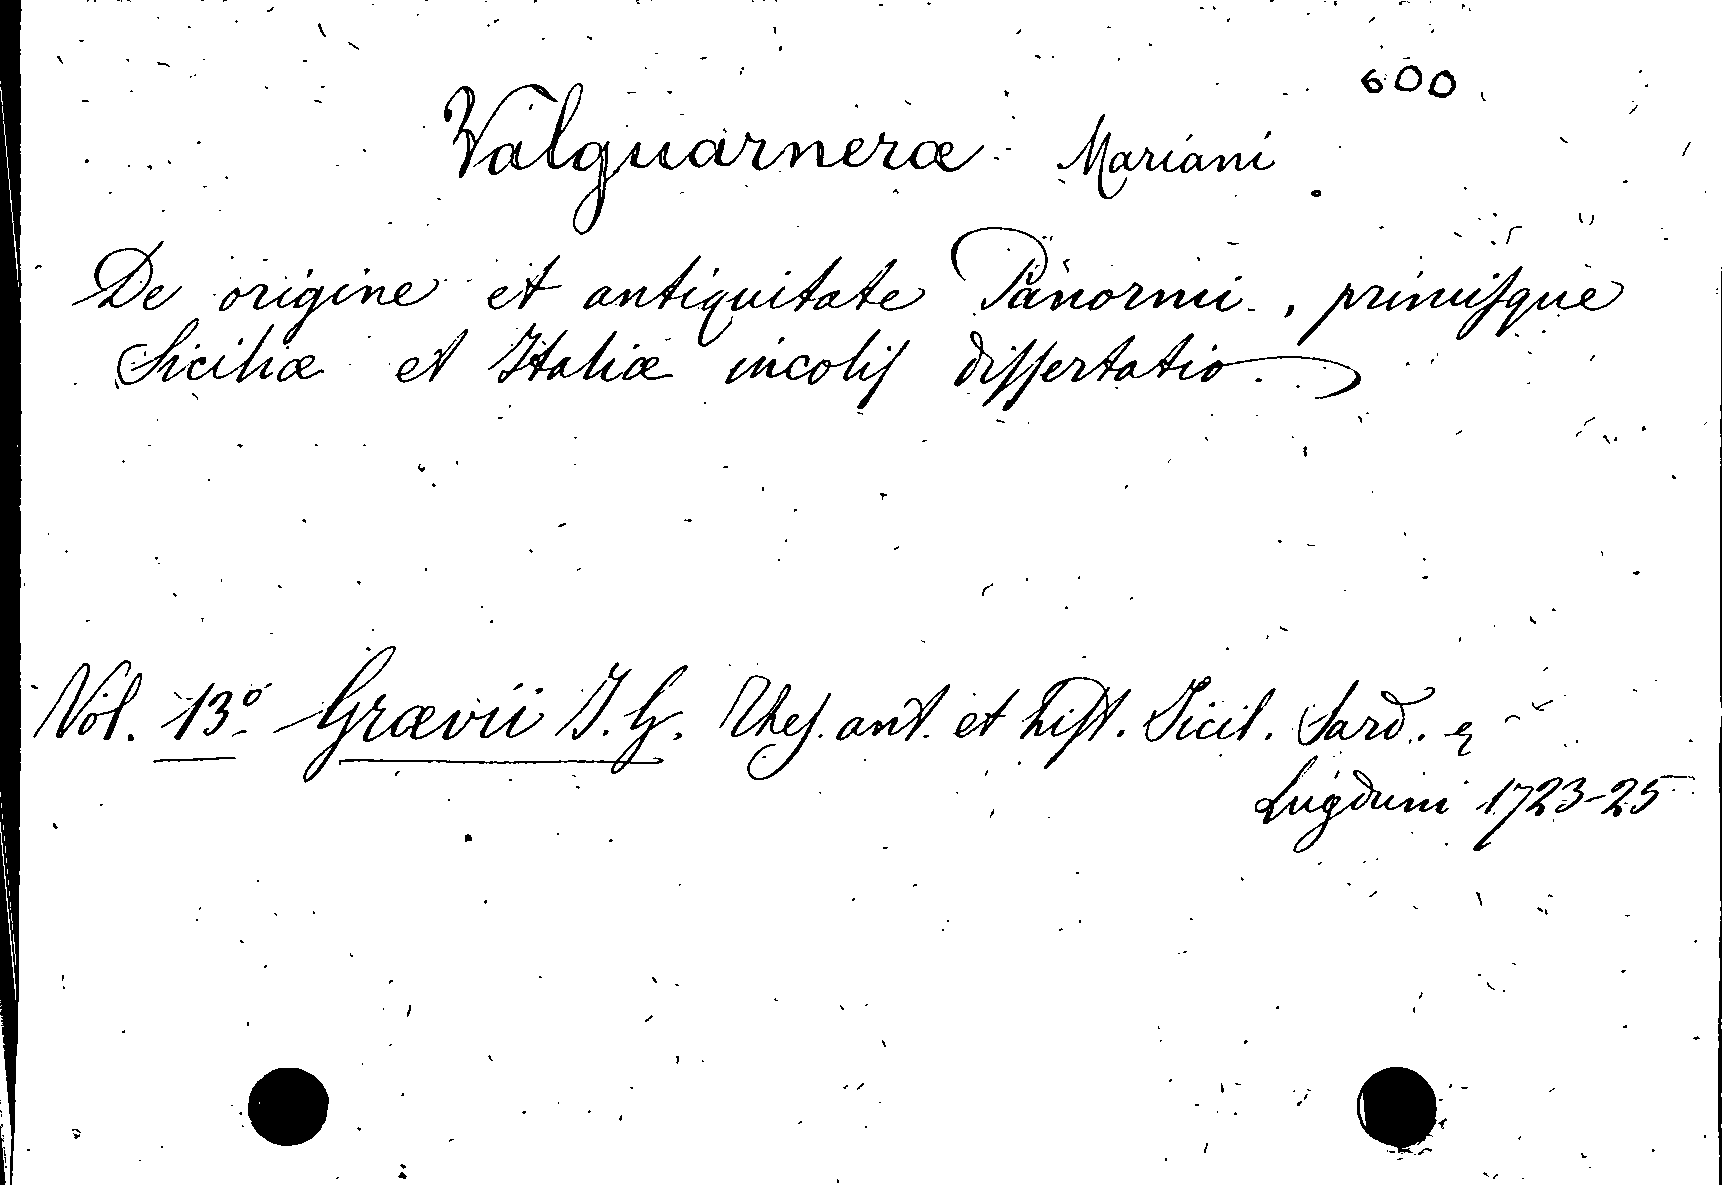 600
Valguarneræ Mariani
De origine et antiquitate Panormi, primisque
Siciliæ et Italiæ incolis dissertatio.
Vol. 13º Grævii J. G. Thes. ant. et hist. Sicil. Sard. &
Lugduni 1723-25